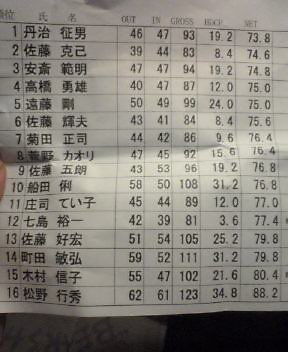 順位 氏 名 OUT IN GROSS HDCP NET
1 丹治 征男 46 47 93 19.2 73.8
2 佐藤 克己 39 44 83 8.4 74.6
3 安斎 範明 47 47 94 19.2 74.8
4 高橋 勇雄 40 47 87 12.0 75.0
5 遠藤 剛 50 49 99 24.0 75.0
6 佐藤 輝夫 43 41 84 8.4 75.6
7 菊田 正司 44 42 86 9.6 76.4
8 菅野 カオリ 47 45 92 15.6 76.4
9 佐藤 五朗 43 53 96 19.2 76.8
10 船田 俐 58 50 108 31.2 76.8
11 庄司 てい子 45 44 89 12.0 77.0
12 七島 裕一 42 39 81 3.6 77.4
13 佐藤 好宏 51 54 105 25.2 79.8
14 町田 敏弘 59 52 111 31.2 79.8
15 木村 信子 55 47 102 21.6 80.4
16 松野 行秀 62 61 123 34.8 88.2